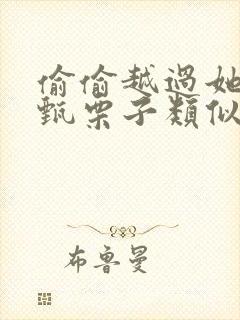 偷偷越過她
甄栗子類似
布魯曼